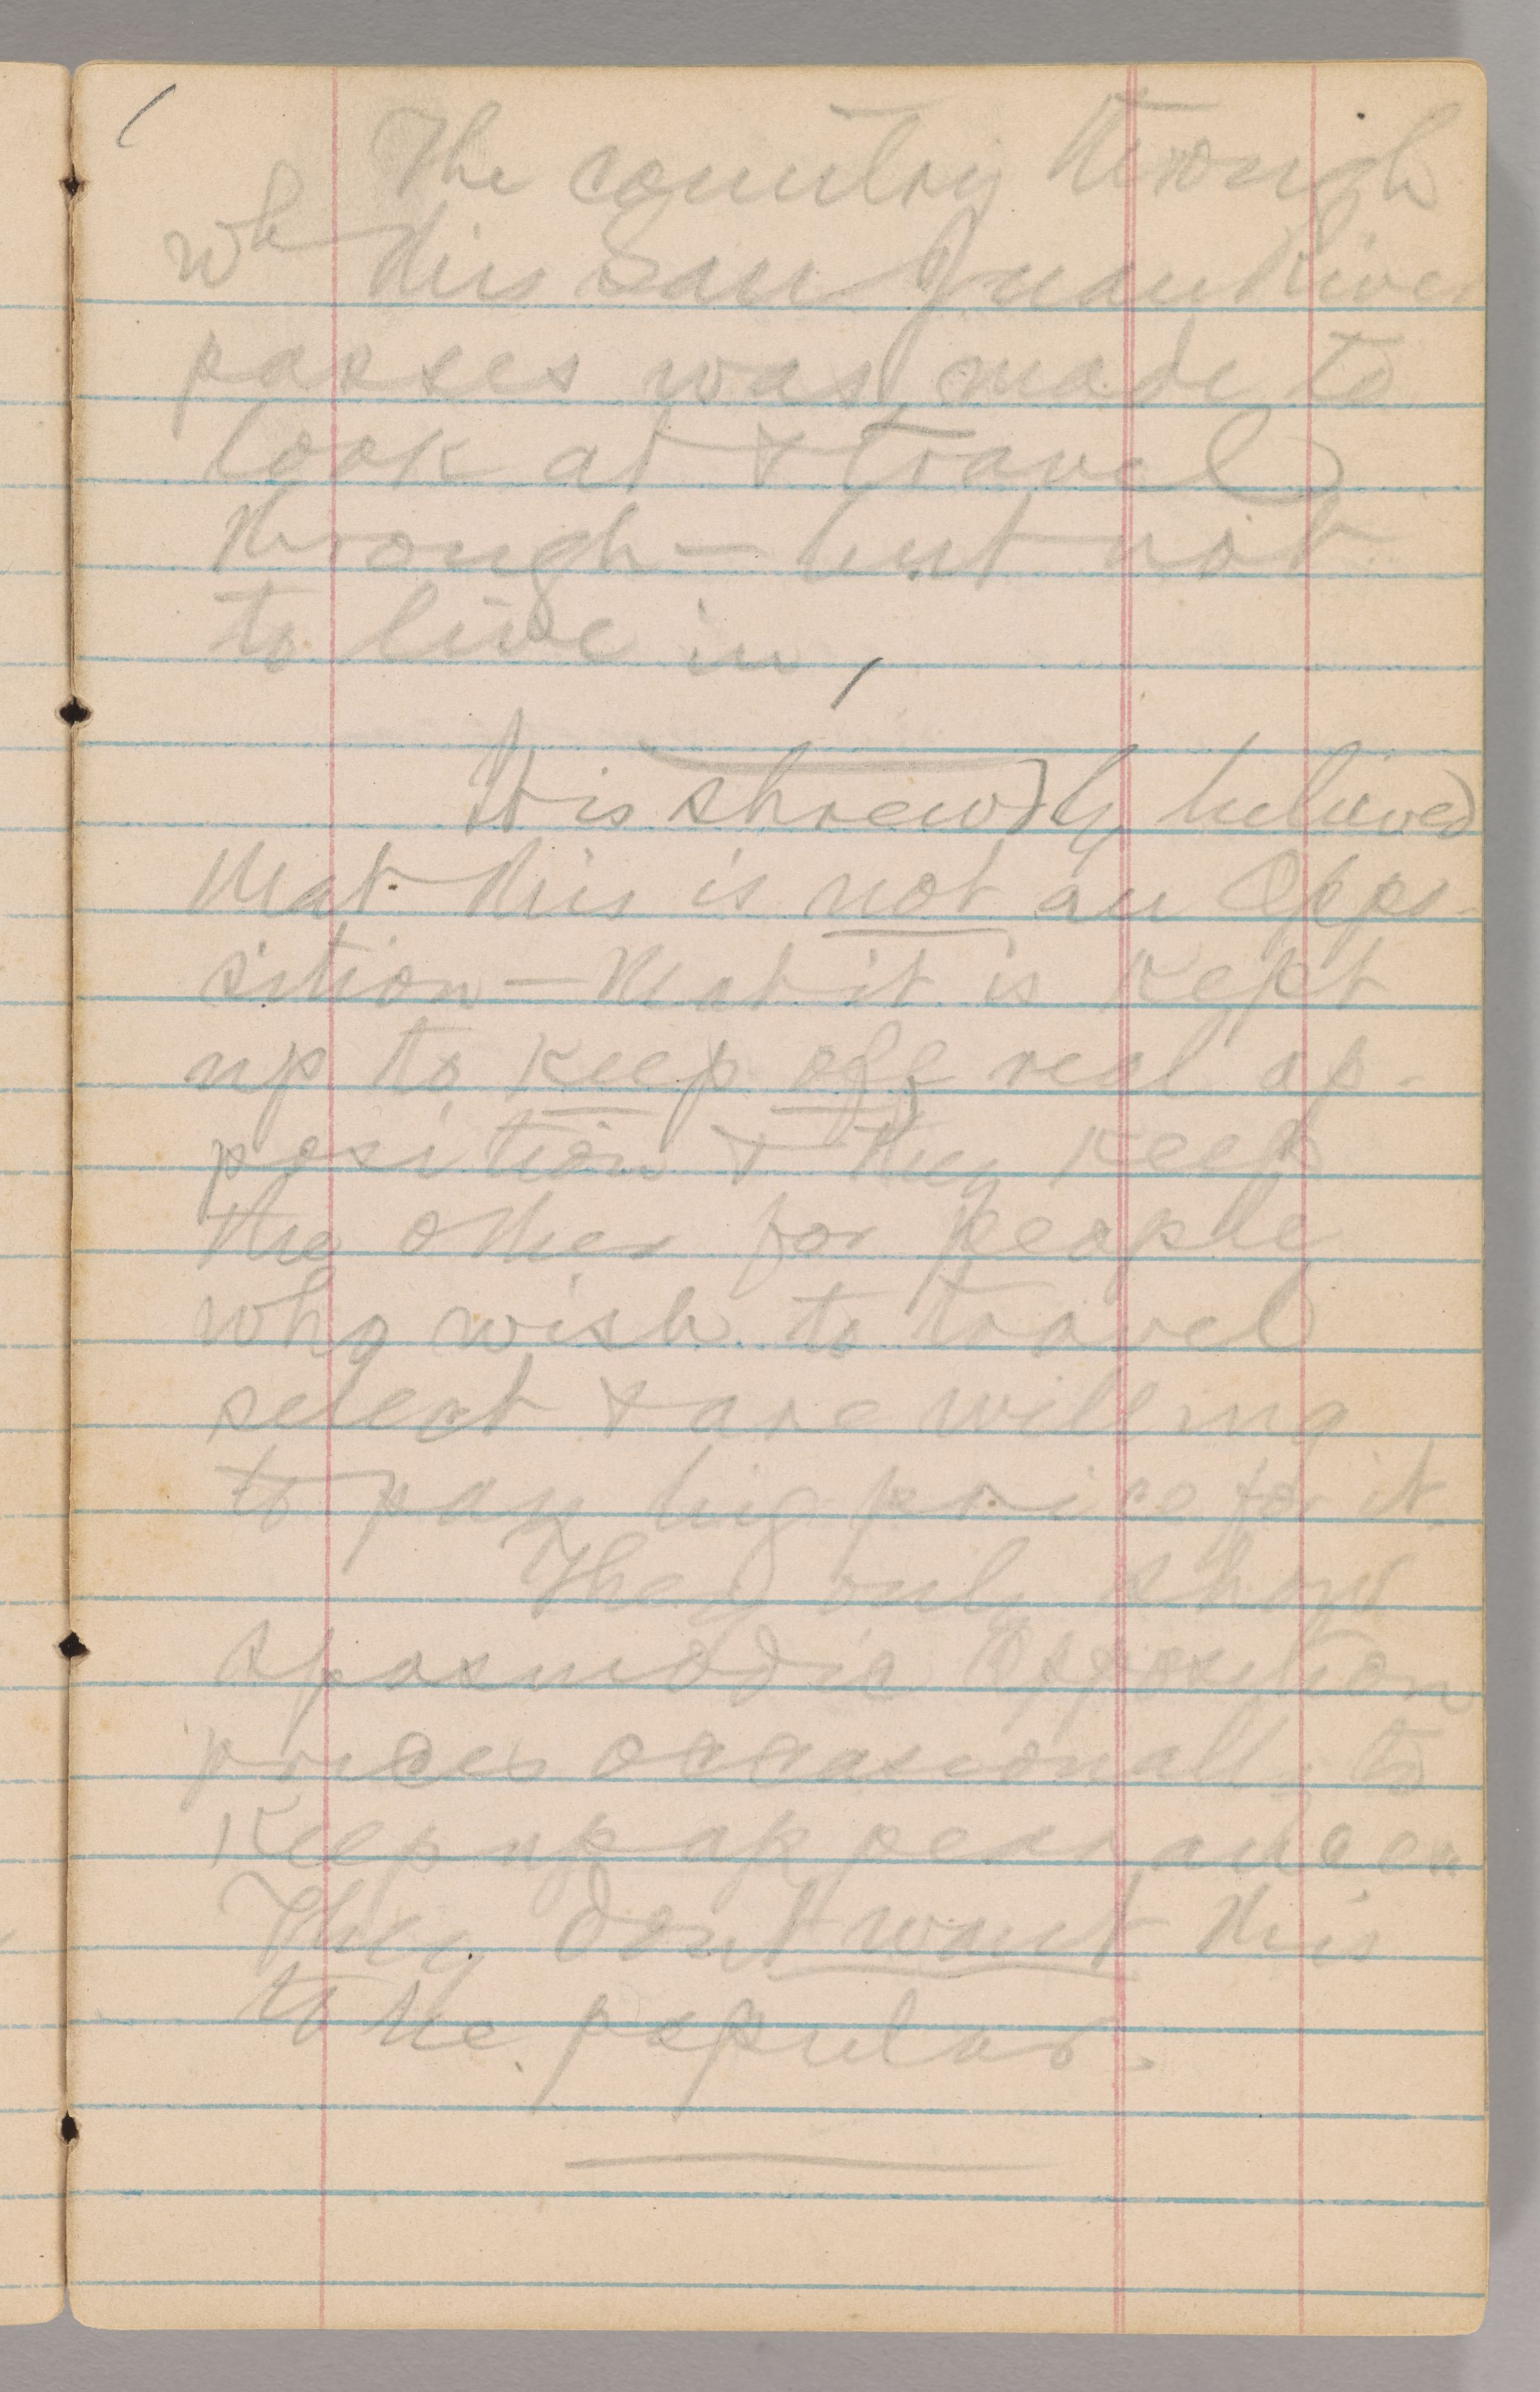 The country through
wh this San Juan River
passes was made to
look at & travel
through — but not
to live in,
It is shrewdly believed
that this is not an Oppo-
sition — that it is kept
up to keep off real op-
position & they keep
the other for people
who wish to travel
select & are willing
to pay big price for it.
They only show
spasmodic Opposition
prices occasionally to
keep up appearances
They dont want this
to be popular.